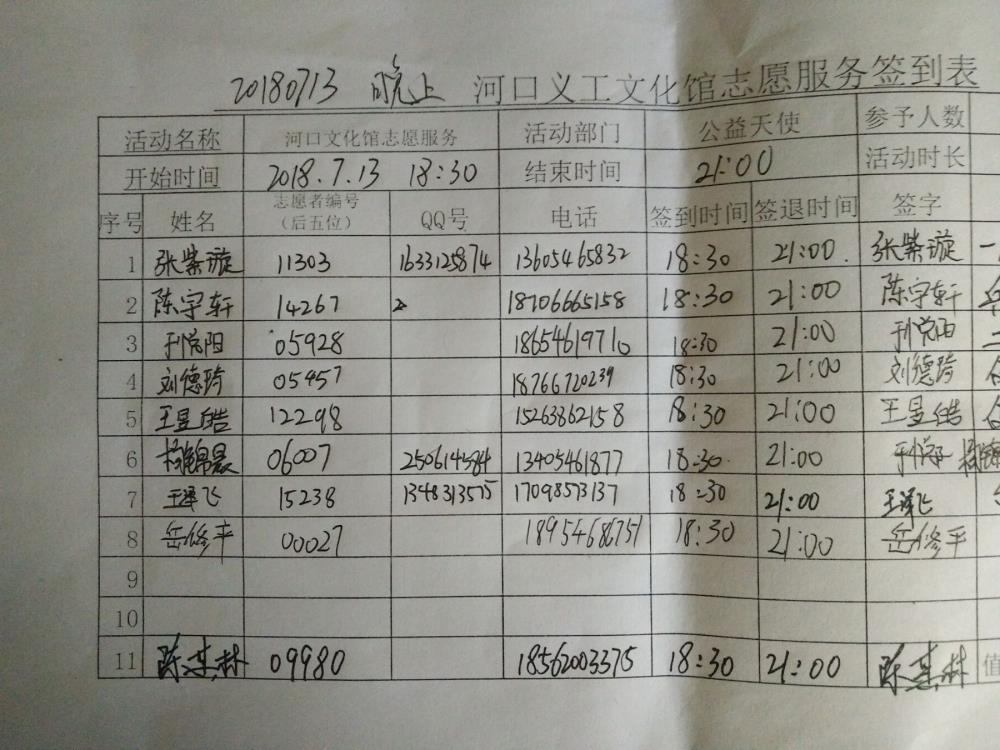 20180713 晚上 河口义工文化馆志愿服务签到表
活动名称 河口文化馆志愿服务 活动部门 公益天使 参予人数
开始时间 2018.7.13 18:30 结束时间 21:00 活动时长
序号 姓名 志愿者编号（后五位） QQ号 电话 签到时间 签退时间 签字
1 张紫璇 11303 1633125874 13605465832 18:30 21:00 张紫璇
2 陈宇轩 14267 18706665158 18:30 21:00 陈宇轩
3 05928 18654619710 18:30 21:00
4 刘德玲 05457 18766720239 18:30 21:00 刘德玲
5 王昱皓 12298 15263862158 18:30 21:00 王昱皓
6 杨锦晨 06007 2506145484 13405461877 18:30 21:00
7 王泽飞 15238 1348313575 17098573137 18:30 21:00 王泽飞
8 岳修平 00027 18954686751 18:30 21:00 岳修平
9
10
11 陈其林 09980 18562003375 18:30 21:00 陈其林 值